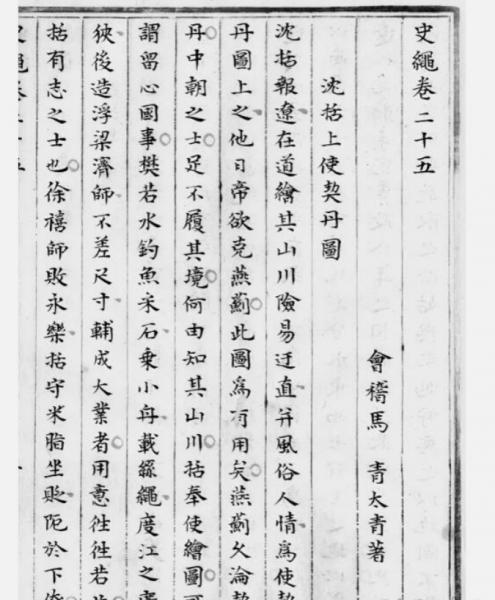 史繩卷二十五
會稽馬 青太青著
沈括上使契丹圖
沈括報遼在道繪其山川險易迂直并風俗人情爲使契
丹圖上之他日帝欲克燕薊此圖爲有用矣燕薊久淪
丹中朝之士足不履其境何由知其山川括奉使繪圖可
謂留心國事樊若水釣魚采石乘小舟載絲繩度江之
狹後造浮梁濟師不差尺寸輔成大業者用意徃徃若
括有志之士也徐禧師敗永樂括守米脂坐貶阨於下